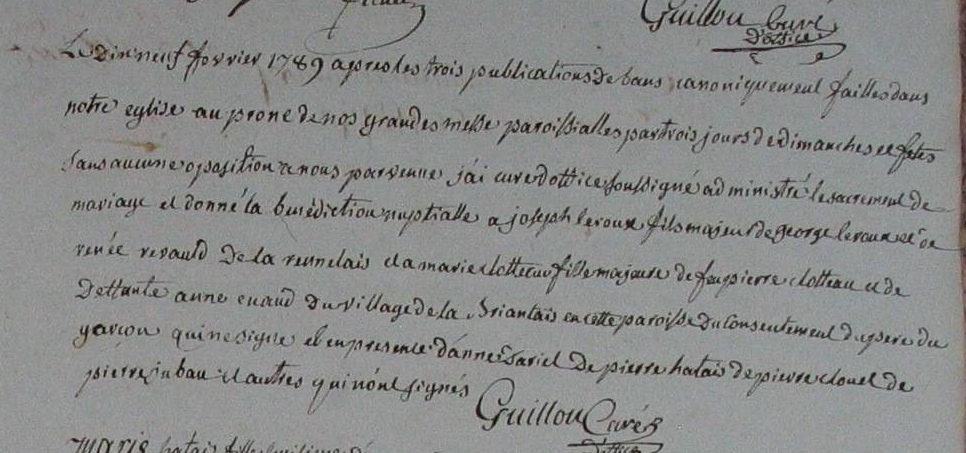 Guillou Curé
D'ottice
Le dix neuf fevrier 1789 apres les trois publications de bans canoniquement failles dans
notre eglise au prone de nos grandes messe paroissialles par trois jours de dimanches et fetes
sans aucune oposition a nous parvenue j'ai curé d'ottice soussigné administré le sacrement de
mariage et donné la benédiction nuptialle a joseph leroux fils majeur de george leroux et de
renée revauld de la rennelais et a marie clotteau fille majeure de feu pierre clotteau et de
deffunte anne evaud du village de la Briantais en cette paroisse du consentement du pere du
garçon qui ne signe et en presence d'anne Sariel de pierre halais de pierre clouel de
pierre jubau et autres qui n'ont signés
Guillou Curé
D'ottice
marie halais fille